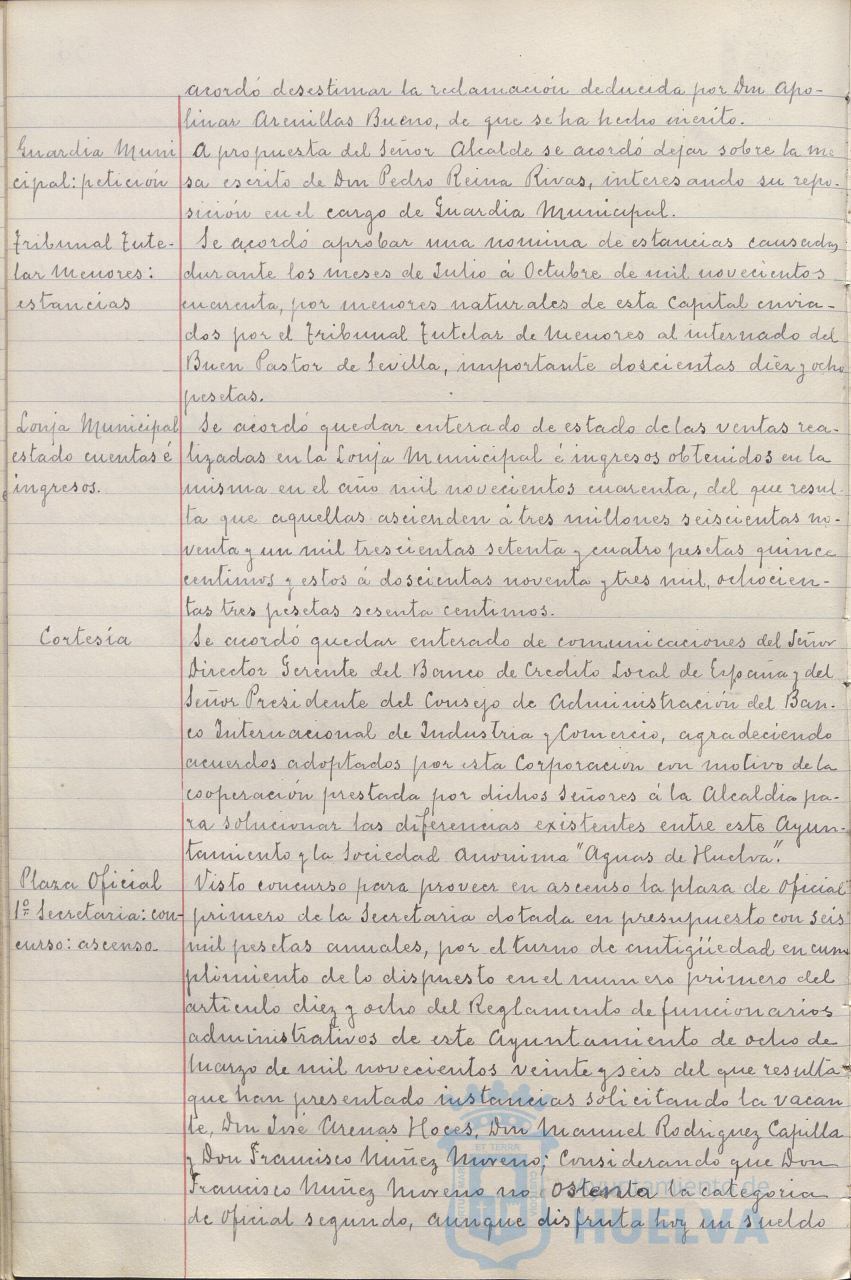 acordó desestimar la reclamación deducida por Don Apo-
linar Arenillas Bueno, de que se ha hecho mérito.
Guardia Muni
cipal: petición
A propuesta del Señor Alcalde se acordó dejar sobre la me
sa escrito de Don Pedro Reina Rivas, interesando su repo-
sición en el cargo de Guardia Municipal.
Tribunal Tute-
lar Menores:
estancias
Se acordó aprobar una nomina de estancias causadas
durante los meses de Julio á Octubre de mil novecientos
cuarenta, por menores naturales de esta Capital envia-
dos por el Tribunal Tutelar de Menores al internado del
Buen Pastor de Sevilla, importante doscientas diez y ocho
pesetas.
Lonja Municipal
estado cuentas é
ingresos.
Se acordó quedar enterado de estado de las ventas rea-
lizadas en la Lonja Municipal é ingresos obtenidos en la
misma en el año mil novecientos cuarenta, del que resul-
ta que aquellas ascienden á tres millones seiscientas no-
venta y un mil trescientas setenta y cuatro pesetas quince
centimos y estos á doscientas noventa y tres mil, ochocien-
tas tres pesetas sesenta centimos.
Cortesía
Se acordó quedar enterado de comunicaciones del Señor
Director Gerente del Banco de Credito Local de España y del
Señor Presidente del Consejo de Administración del Ban-
co Internacional de Industria y Comercio, agradeciendo
acuerdos adoptados por esta Corporación con motivo de la
cooperación prestada por dichos Señores á la Alcaldia pa-
ra solucionar las diferencias existentes entre este Ayun-
tamiento y la Sociedad Anonima "Aguas de Huelva".
Plaza Oficial
1º Secretaria: con-
curso: ascenso.
Visto concurso para proveer en ascenso la plaza de Oficial
primero de la Secretaria dotada en presupuesto con seis
mil pesetas anuales, por el turno de antigüedad en cum
plimiento de lo dispuesto en el numero primero del
articulo diez y ocho del Reglamento de funcionarios
administrativos de este Ayuntamiento de ocho de
Marzo de mil novecientos veinte y seis del que resulta
que han presentado instancias solicitando la vacan
te, Don José Arenas Hoces, Don Manuel Rodriguez Capilla
y Don Francisco Nuñez Moreno; Considerando que Don
Francisco Nuñez Moreno no ostenta la categoria
de Oficial segundo, aunque disfruta hoy un sueldo
ET TERRA
Ayuntamiento de
HUELVA